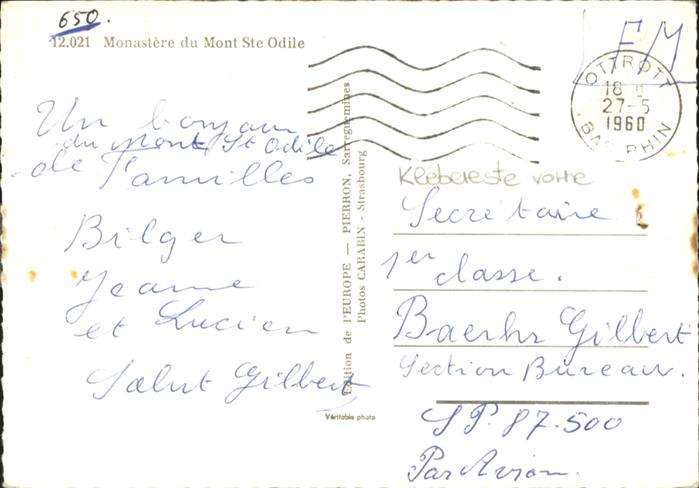 650.
12.021 Monastère du Mont Ste Odile
Un bonjour
du Mont St Odile
de Familles
Bilger
Jeanne
et Lucien
Salut Gilbert
Edition de l'EUROPE — PIERRON, Sarreguemines
Photos CARABIN - Strasbourg
Véritable photo
FM
OTTROTT
18 H
27-5
1960
BAS-RHIN
Klebereste vorne
Secrétaire
1er classe.
Baerhr Gilbert
Section Bureau.
SP. 87.500
Par Avion.